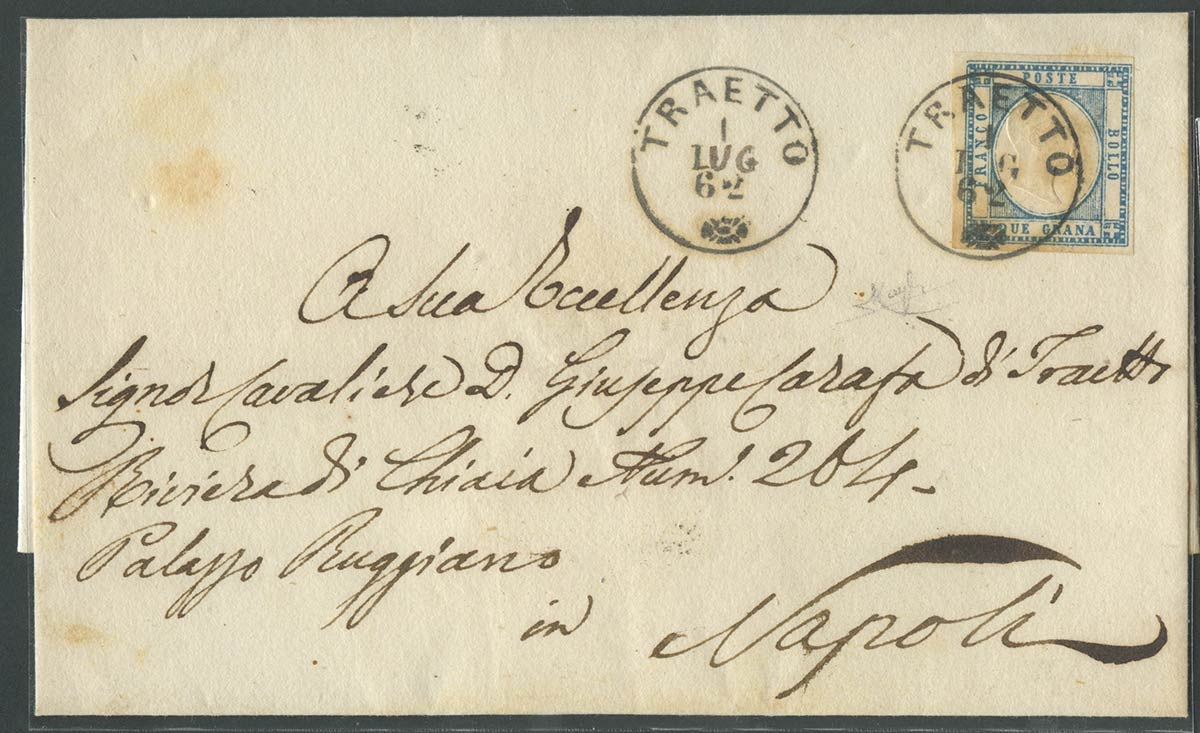 TRAETTO
1
LUG
62
TRAETTO
1
LUG
62
POSTE
FRANCO
BOLLO
DUE GRANA
A Sua Eccellenza
Signor Cavaliere D. Giuseppe Carafa di Traetto
Riviera di Chiaia Num.° 264
Palazzo Ruggiano
in Napoli